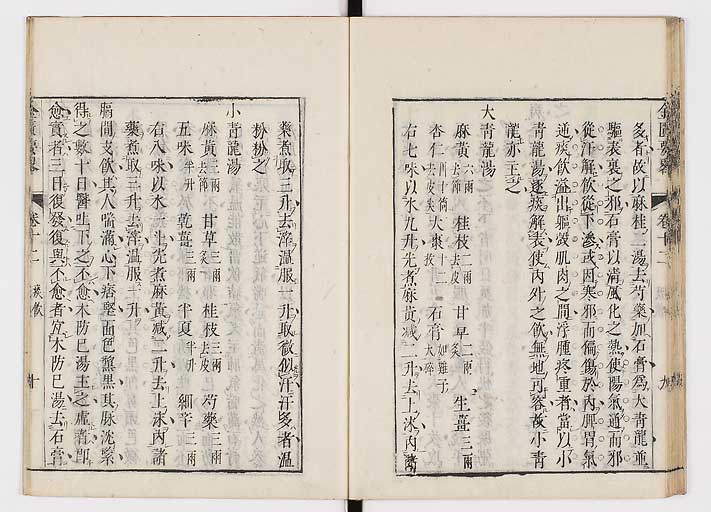 多者故以麻桂二湯去芍藥加石膏爲大青龍並
驅表裏之邪石膏以清風化之熱使陽氣通而邪
從汗解飲從下滲或因寒邪而偏傷於内脾胃氣
通痰飲溢出軀殼肌肉之間浮腫疼重者當以小
青龍湯逐痰解表使内外之飲無地可容故小青
龍亦主之
大青龍湯
麻黄六兩去節 桂枝二兩去皮 甘草二兩炙 生薑三兩
杏仁四十箇去皮尖 大棗十二枚 石膏如雞子大碎
右七味以水九升先煮麻黄减二升去上沫内諸
金匱要畧 卷十二 痰飲 九
藥煮取三升去滓温服一升取微似汗汗多者温
粉粉之
小青龍湯
麻黄三兩去節 甘草三兩炙 桂枝三兩去皮 芍藥三兩
五味半升 乾薑三兩 半夏半升 細辛三兩
右八味以水一斗先煮麻黄减二升去上沫内諸
藥煮取三升去滓温服一升
膈間支飲其人喘滿心下痞堅面色黧黑其脉沈緊
得之數十日醫吐下之不愈木防已湯主之虚者卽
愈實者三日復發復與不愈者宜木防已湯去石膏
金匱要畧 卷十二 痰飲 十